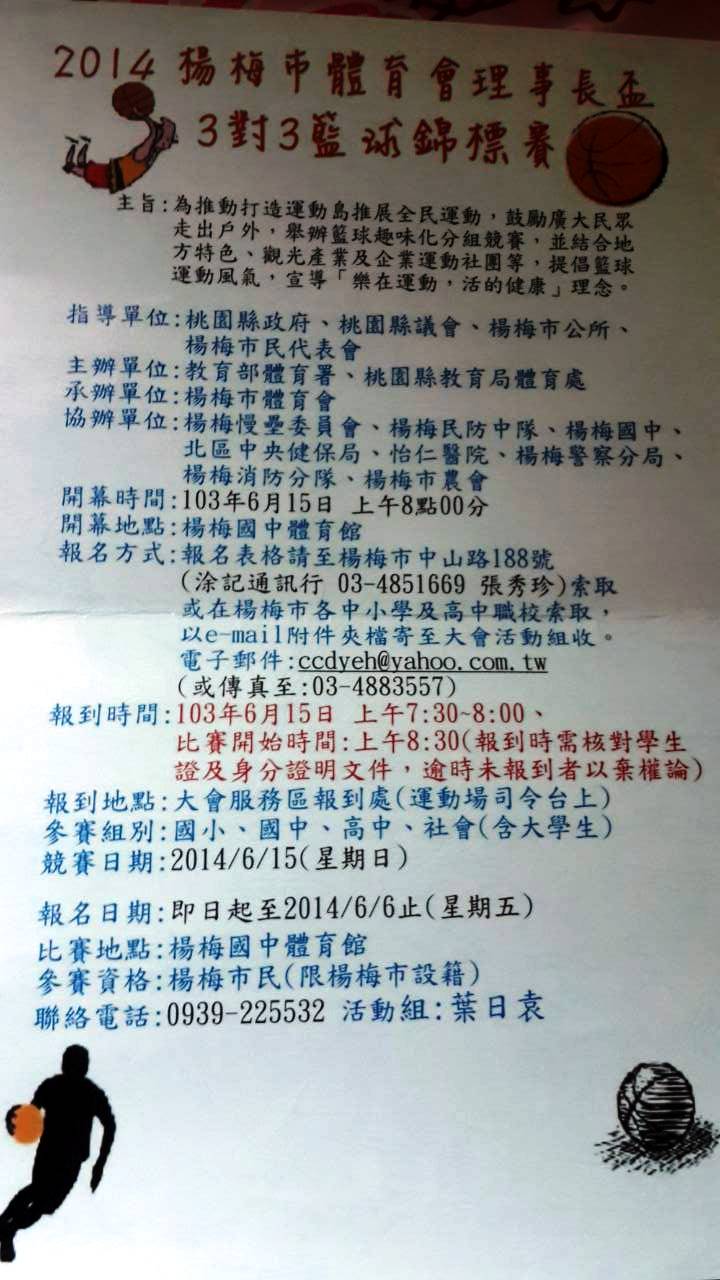 2014 楊梅市體育會理事長盃
3對3籃球錦標賽
主旨:為推動打造運動島推展全民運動，鼓勵廣大民眾
走出戶外，舉辦籃球趣味化分組競賽，並結合地
方特色、觀光產業及企業運動社團等，提倡籃球
運動風氣，宣導「樂在運動，活的健康」理念。
指導單位:桃園縣政府、桃園縣議會、楊梅市公所、
楊梅市民代表會
主辦單位:教育部體育署、桃園縣教育局體育處
承辦單位:楊梅市體育會
協辦單位:楊梅慢壘委員會、楊梅民防中隊、楊梅國中、
北區中央健保局、怡仁醫院、楊梅警察分局、
楊梅消防分隊、楊梅市農會
開幕時間:103年6月15日 上午8點00分
開幕地點:楊梅國中體育館
報名方式:報名表格請至楊梅市中山路188號
(涂記通訊行 03-4851669 張秀珍)索取
或在楊梅市各中小學及高中職校索取，
以e-mail附件夾檔寄至大會活動組收。
電子郵件:ccdyeh@yahoo.com.tw
(或傳真至:03-4883557)
報到時間:103年6月15日 上午7:30~8:00、
比賽開始時間:上午8:30(報到時需核對學生
證及身分證明文件，逾時未報到者以棄權論)
報到地點:大會服務區報到處(運動場司令台上)
參賽組別:國小、國中、高中、社會(含大學生)
競賽日期:2014/6/15(星期日)
報名日期:即日起至2014/6/6止(星期五)
比賽地點:楊梅國中體育館
參賽資格:楊梅市民(限楊梅市設籍)
聯絡電話:0939-225532 活動組:葉日袁